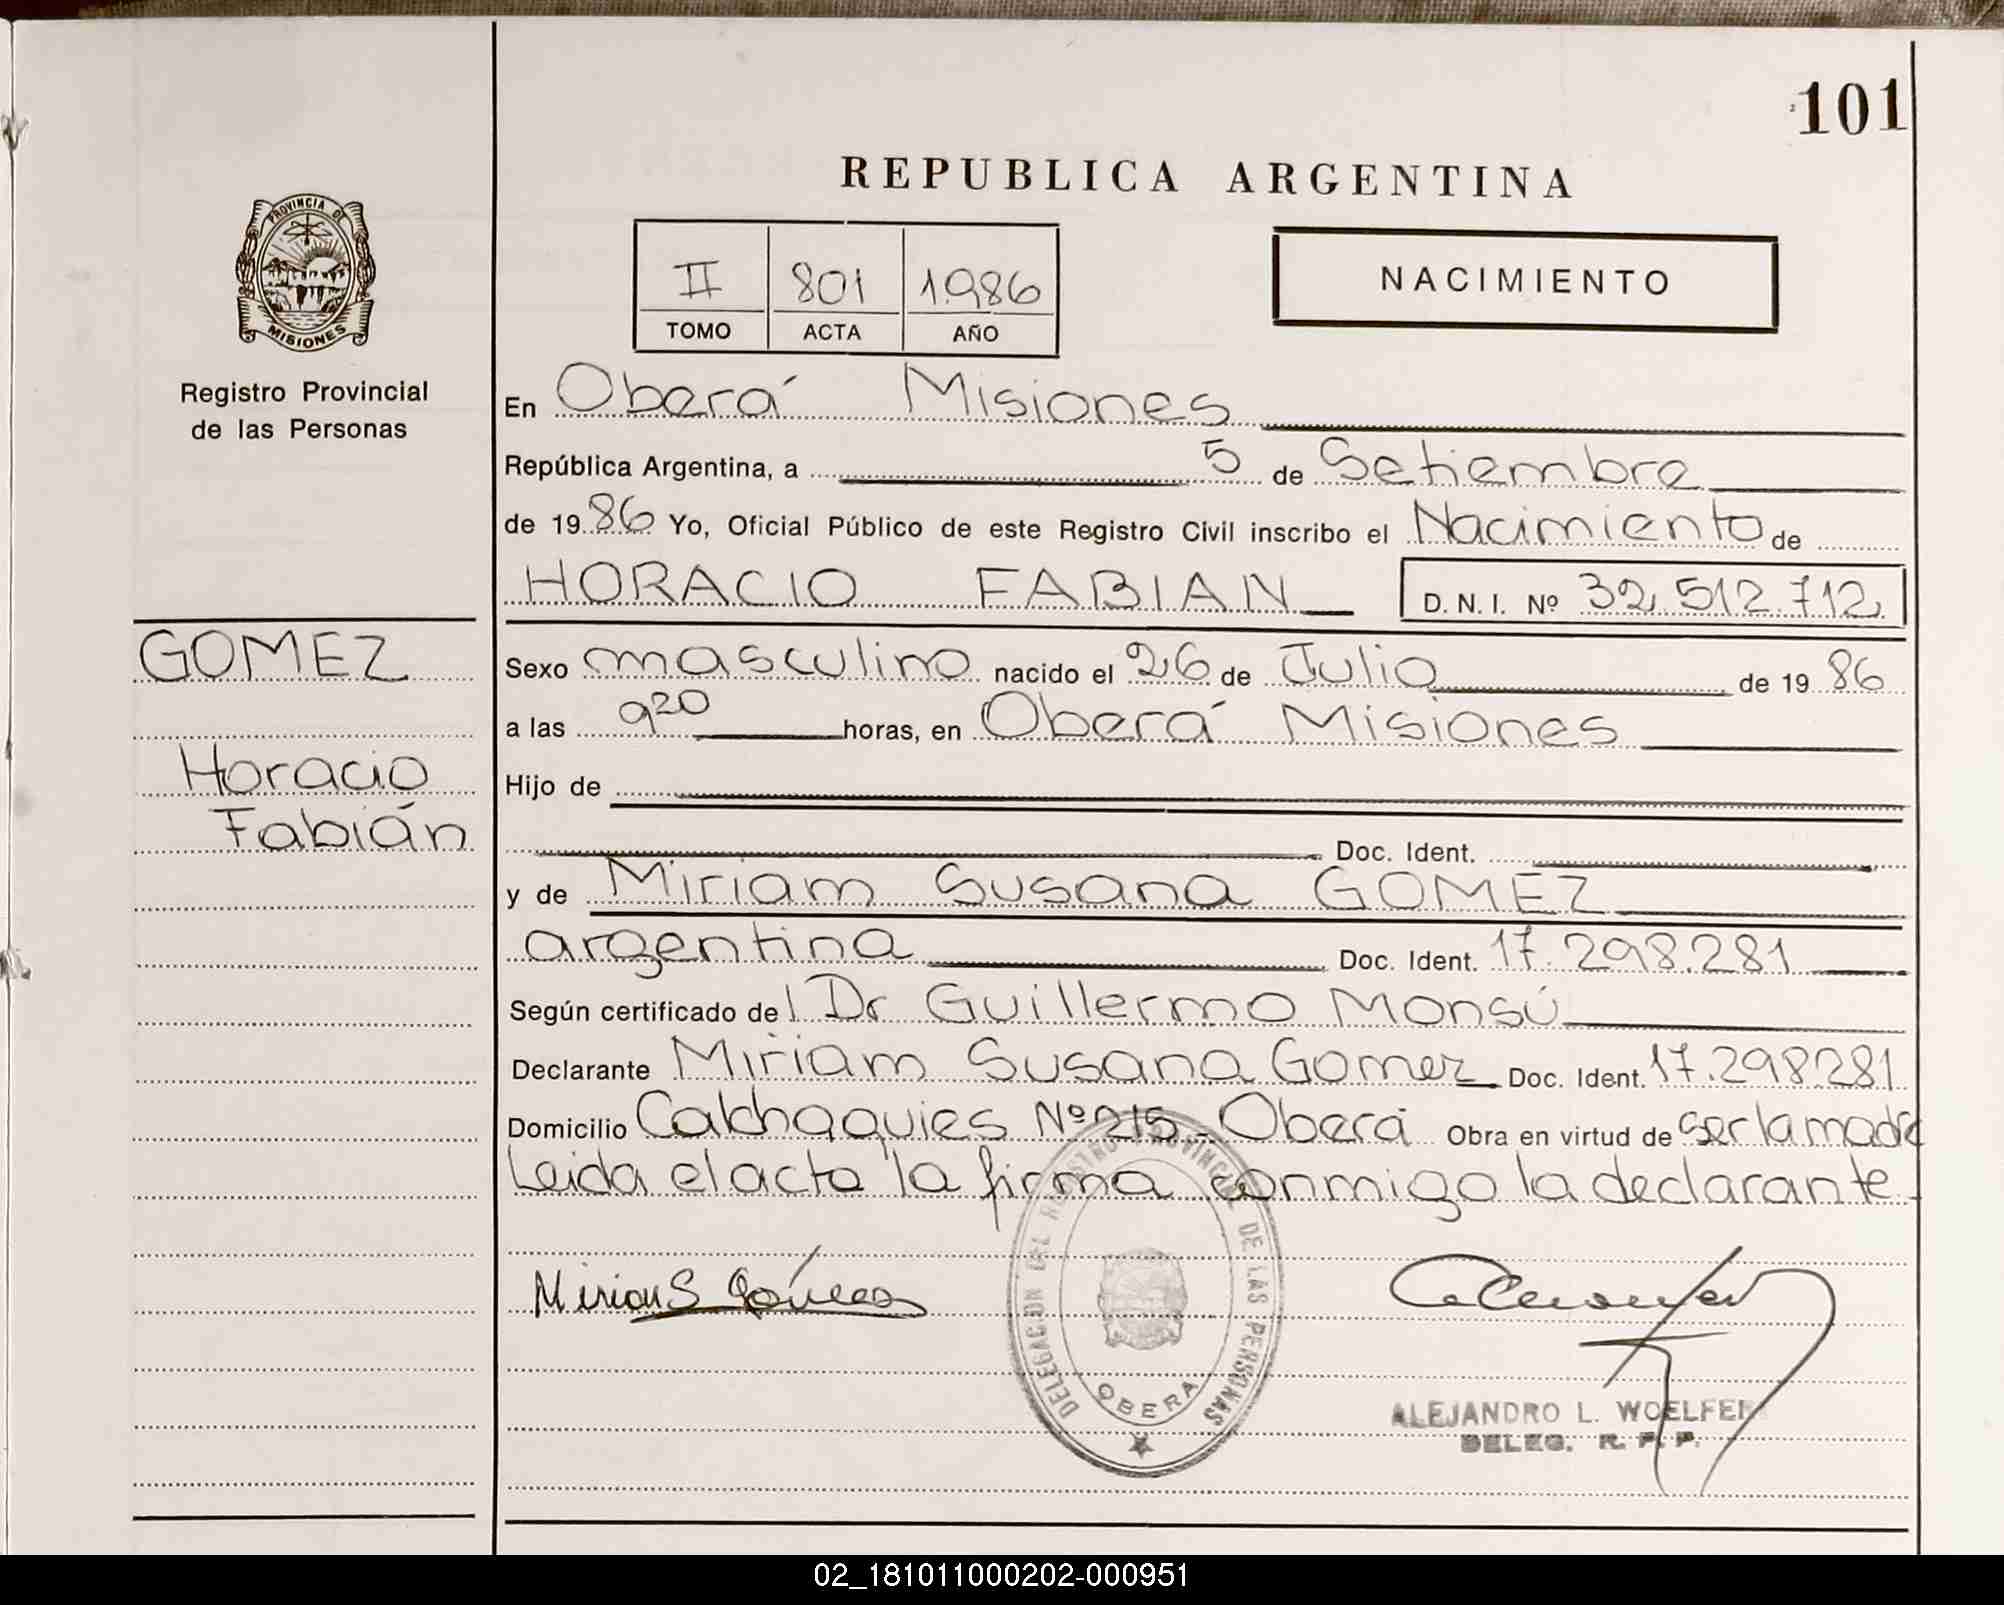 101
REPUBLICA ARGENTINA
PROVINCIA DE
MISIONES
Registro Provincial
de las Personas
II 801 1986
TOMO ACTA AÑO
NACIMIENTO
En Oberá Misiones
República Argentina, a 5 de Setiembre
de 1986 Yo, Oficial Público de este Registro Civil inscribo el Nacimiento de
HORACIO FABIAN D. N. I. Nº 32.512.712
GOMEZ
Horacio
Fabián
Sexo masculino nacido el 26 de Julio de 1986
a las 9 20 horas, en Oberá Misiones
Hijo de
Doc. Ident.
y de Miriam Susana GOMEZ
argentina Doc. Ident. 17.298.281
Según certificado del Dr Guillermo Monsú
Declarante Miriam Susana Gomez Doc. Ident. 17.298.281
Domicilio Calchaquies Nº 215 - Oberá Obra en virtud de ser la madre
Leida el acta la firma conmigo la declarante -
Miriam S Gómez
DELEGACION DEL REGISTRO PROVINCIAL DE LAS PERSONAS
OBERA
ALEJANDRO L. WOELFER
DELEG. R. P. P.
02_181011000202-000951